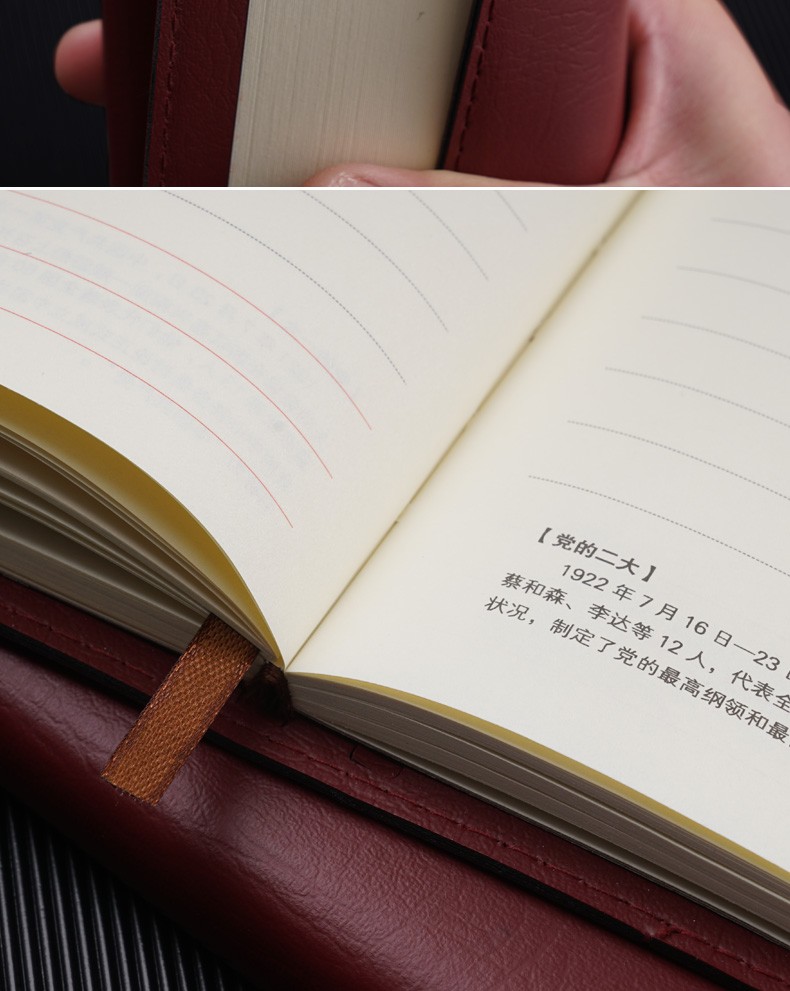 【党的二大】
1922年7月16日—23
蔡和森、李达等12人，代表全
状况，制定了党的最高纲领和最